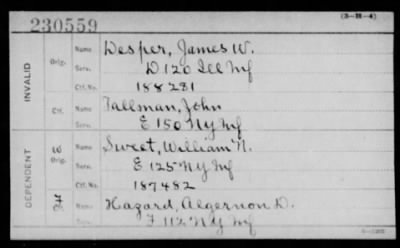 230559
(3-28-4)
INVALID
Orig.
Name
Desper, James W.
Serv.
D 120 Ill Inf
Ctf. No.
188281
Ctf.
Name
Tallman, John
Serv.
E 150 N.Y. Inf
DEPENDENT
W
Orig.
Name
Sweet, William N.
Serv.
E 125 N.Y. Inf
Ctf. No.
187482
Name
Hazard, Algernon D.
Serv.
F 112 N.Y. Inf